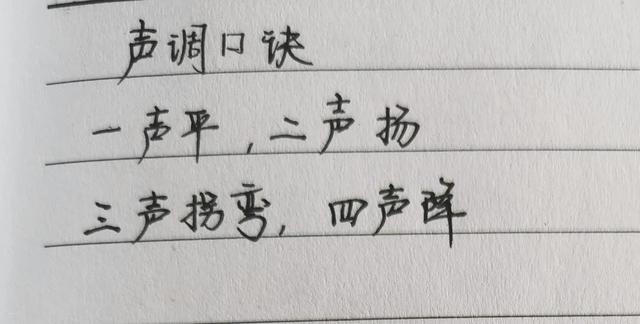 声调口诀
一声平,二声扬
三声拐弯,四声降